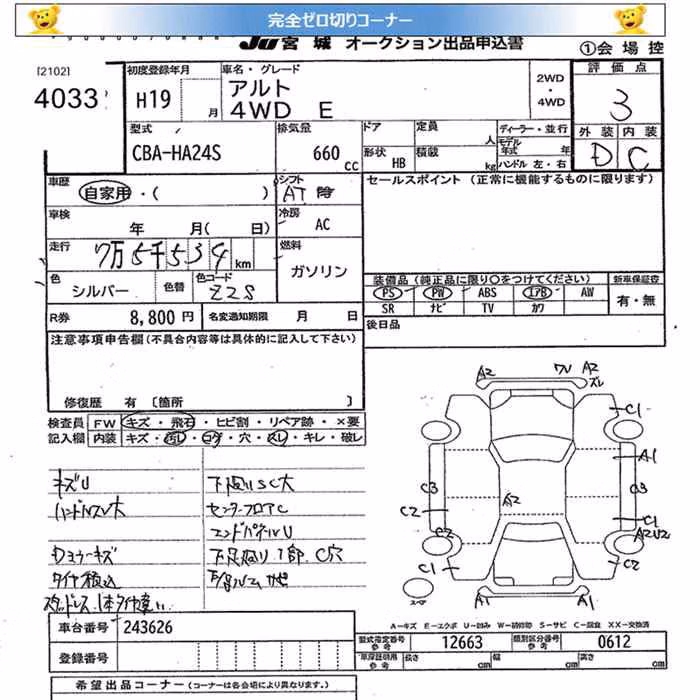 完全ゼロ切りコーナー
JU宮城 オークション出品申込書
①会場控
[2102]
4033
初度登録年月
H19 月
車名・グレード
アルト
4WD E
2WD
・
4WD
評価点
3
外装 内装
D C
型式
CBA-HA24S
排気量
660 cc
ドア
形状 HB
定員 人
積載 kg
ディーラー・並行
モデル年式 年
ハンドル 左・右
車歴
自家用・( )
シフト
AT
セールスポイント (正常に機能するものに限ります)
車検
年 月( 日)
冷房
AC
走行
7万5千534km
燃料
ガソリン
色
シルバー
色替
色コード
Z2S
装備品(純正品に限り○をつけてください)
新車保証書
PS PW ABS エアB AW
有・無
SR ナビ TV カワ
R券
8,800円
名変通知期限 月 日
後日品
注意事項申告欄(不具合内容等は具体的に記入して下さい)
修復歴 有 [箇所 ]
検査員
記入欄
FW キズ・飛石・ヒビ割・リペア跡・×要
内装 キズ・汚レ・コゲ・穴・スレ・キレ・破レ
キズU
ハンドルスレ大
タイヤ積込
スタッドレス 1本タイヤ違い
下廻りSC大
センターフロアC
エンドパネルU
A2 ワレ A2
ズレ
C1
A1
C3 A2 C3
C2 C1
C2 A2U2
C1 C2
スペア
A1 A1
A-キズ E-エクボ U-凹み W-補修跡 S-サビ C-腐食 XX-交換済
車台番号
243626
登録番号
型式指定番号
参考
12663
類別区分番号
参考
0612
車庫証明用
参考
長さ cm 幅 cm 高さ cm
希望出品コーナー(コーナーは各会場により異なります。)